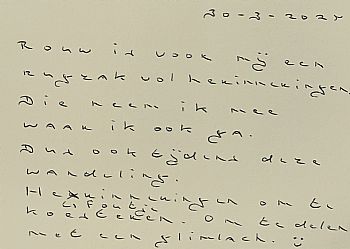 30-3-2025
Rouw is voor mij een
rugzak vol herinneringen.
Die neem ik mee
waar ik ook ga.
Dus ook tijdens deze
wandeling.
Herinneringen om te
koesteren. Om te delen
met een glimlach. ü